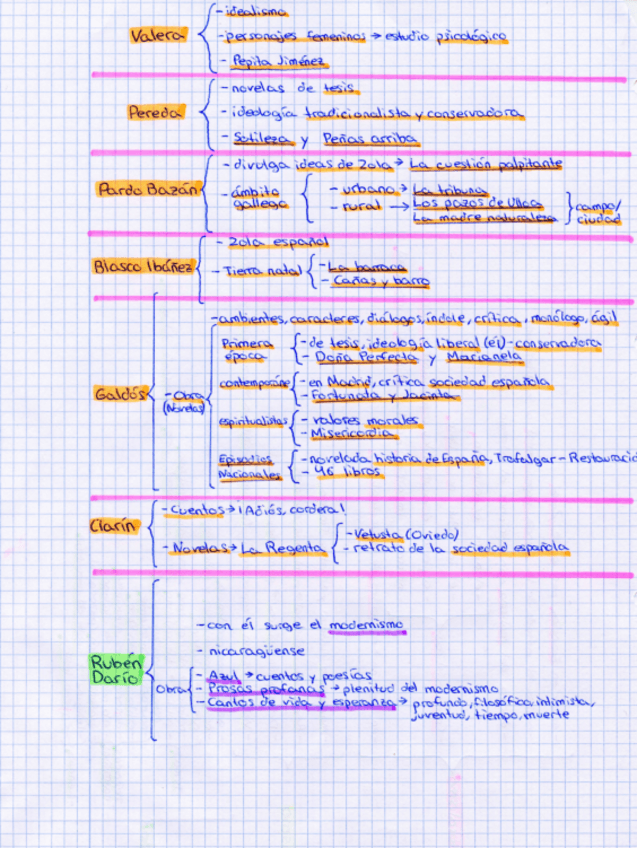 Valera
- idealismo
- personajes femeninos → estudio psicológico
- Pepita Jiménez
Pereda
- novelas de tesis
- ideología tradicionalista y conservadora
- Sotileza y Peñas arriba
Pardo Bazán
- divulga ideas de Zola → La cuestión palpitante
- ámbito gallego
- urbano → La tribuna
- rural → Los pazos de Ulloa
La madre naturaleza
campo/
ciudad
Blasco Ibáñez
- Zola español
- Tierra natal
- La barraca
- Cañas y barro
Galdós
- Obra
(Novelas)
- ambientes, caracteres, diálogos, índole, crítica, monólogo, ágil
Primera
época
- de tesis, ideología liberal (él) - conservadora
- Doña Perfecta y Marianela
contemporáne
- en Madrid, crítica sociedad española
- Fortunata y Jacinta
espiritualistas
- valores morales
- Misericordia
Episodios
Nacionales
- novelada historia de España, Trafalgar - Restauració
- 46 libros
Clarín
- Cuentos → ¡Adiós, cordera!
- Novelas → La Regenta
- Vetusta (Oviedo)
- retrato de la sociedad española
Rubén
Darío
- con él surge el modernismo
- nicaragüense
Obra
- Azul → cuentos y poesías
- Prosas profanas → plenitud del modernismo
- Cantos de vida y esperanza → profundo, filosófico, intimista,
juventud, tiempo, muerte